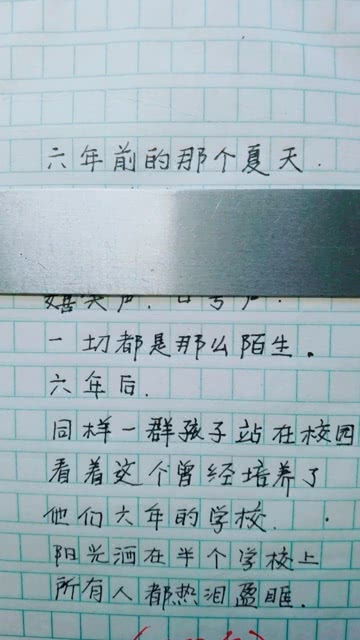 六年前的那个夏天.
嬉笑声.口号声.
一切都是那么陌生。
六年后.
同样一群孩子站在校园
看着这个曾经培养了
他们六年的学校.
阳光洒在半个学校上
所有人都热泪盈眶.